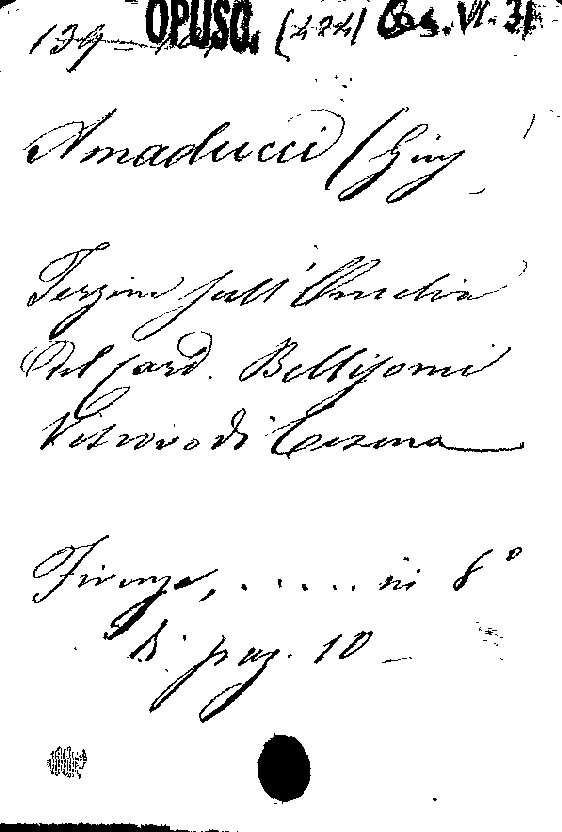 139 OPUSC. (424) Ces. VI. 31
Amaducci (Giu
Terzine sull'Omelia
del Card. Bellisomi
Vescovo di Cesena
Firenze, ...... in 8°
di pag. 10 -